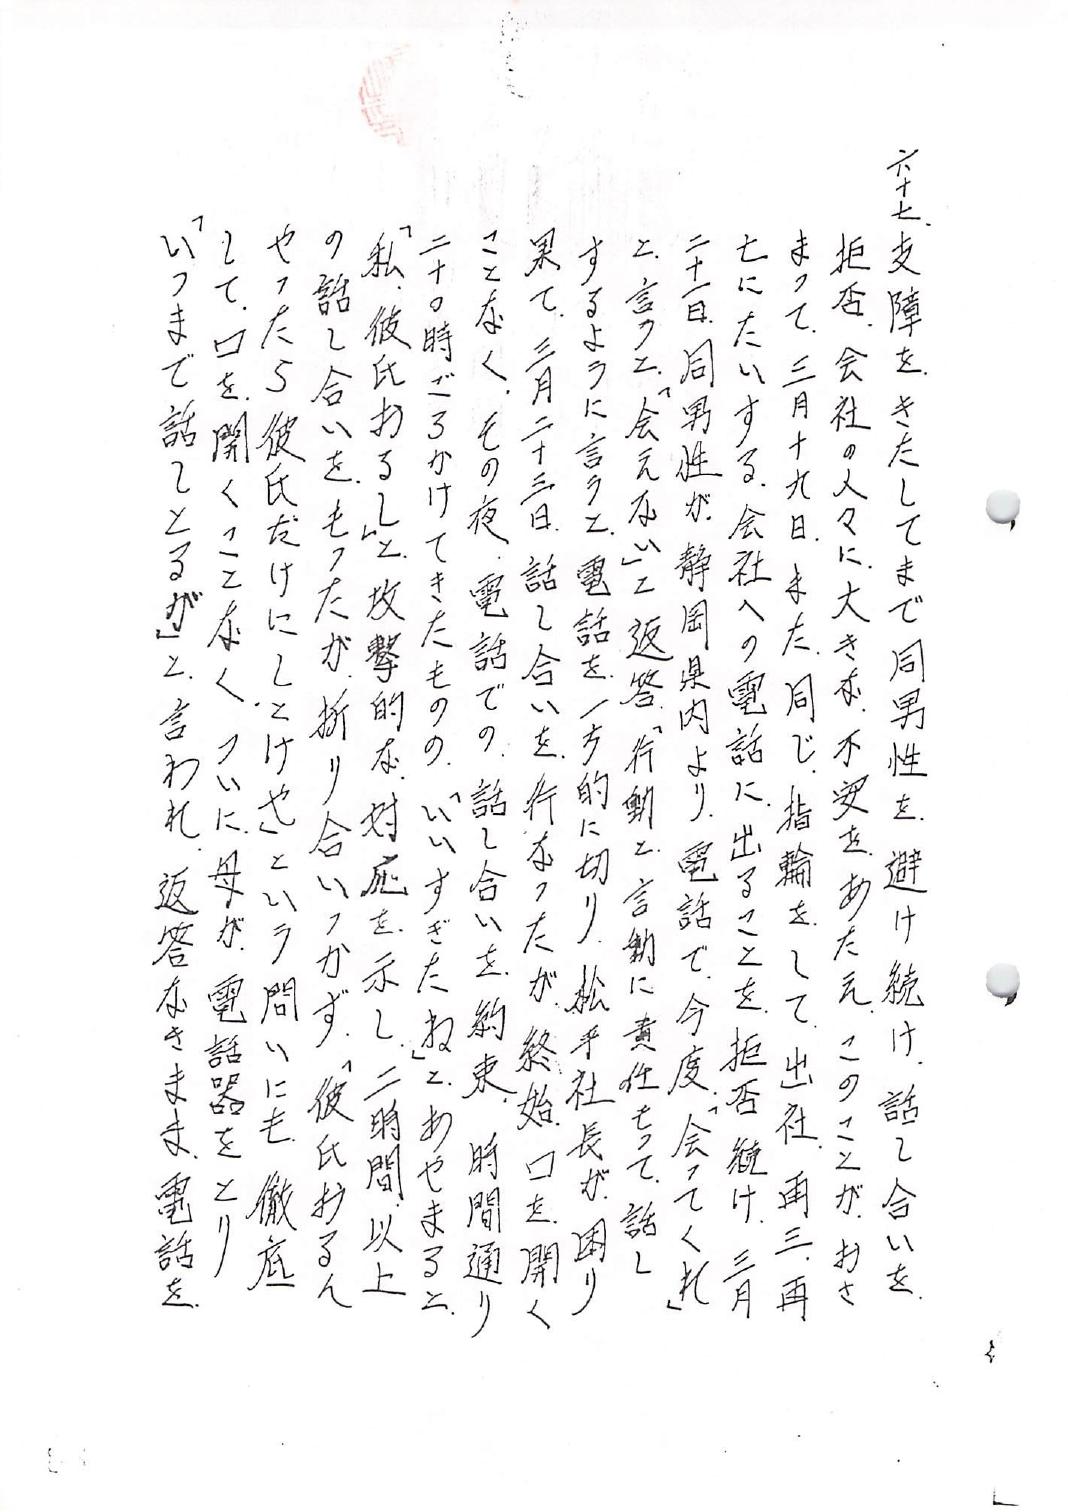 六十七、
支障を、きたしてまで同男性を、避け続け、話し合いを、
拒否、会社の人々に、大きな、不安を、あたえ、このことが、おさ
まって、三月十九日、また、同じ、指輪をして、出社、再三、再
七にたいする、会社への電話に、出ることを、拒否続け、三月
二十一日、同男性が、静岡県内より、電話で、今度、「会ってくれ」
と、言うと、「会えない」と返答、「行動と、言動に責任もって、話し
するように言うと、電話を、一方的に切り、松平社長が、困り
果て、三月二十三日、話し合いを、行なったが、終始、口を、開く
ことなく、その夜、電話での、話し合いを、約束、時間通り
二十の時ごろかけてきたものの、「いいすぎたね」と、あやまると、
「私、彼氏おるし」と、攻撃的な、対応を、示し、二時間、以上
の話し合いを、もったが、折り合いつかず、「彼氏おるん
やったら彼氏だけにしとけや」という問いにも、徹底
して、口を、開くことなく、ついに、母が、電話器をとり
「いつまで話しとるが」と、言われ、返答なきまま、電話を、